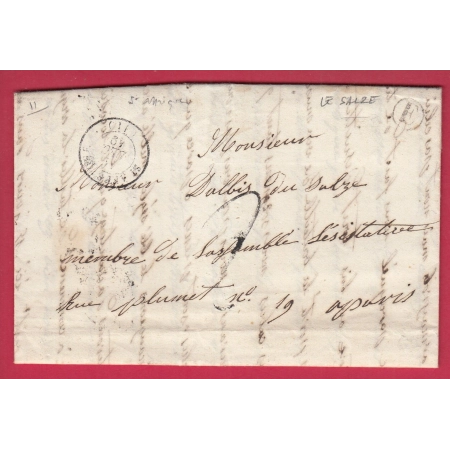 11
LE SALZE
Monsieur
Monsieur Dalbis du Salze
membre de Lasemblé Législative
Rue plumet n° 19 aparis